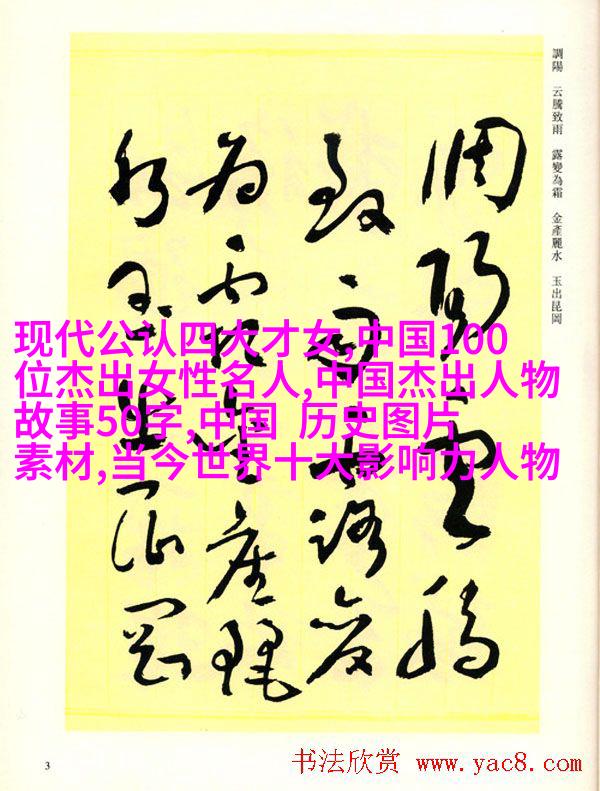 調陽 云騰致雨 露變為霜 金產麗水 玉出昆岡
調陽雲騰
致雨露變
為霜金產麗
水玉出崐岡
现代公认四大才女,中国100
位杰出女性名人,中国杰出人物
故事50字,中国 历史图片
素材,当今世界十大影响力人物
3
书法欣赏 www.yac8.com